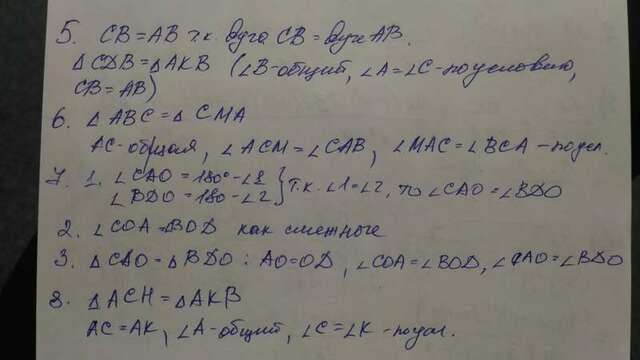 5. CB = AB т.к. дуга CB = дуге AB.
ΔCDB = ΔAKB (∠B-общий, ∠A = ∠C - по условию,
CB = AB)
6. ΔABC = ΔCMA
AC-общая, ∠ACM = ∠CAB, ∠MAC = ∠BCA - по усл.
7. 1. ∠CAO = 180° - ∠1
∠BDO = 180 - ∠2 } т.к. ∠1 = ∠2, то ∠CAO = ∠BDO
2. ∠COA = BOD как смежные
3. ΔCAO = ΔBDO : AO = OD, ∠COA = ∠BOD, ∠CAO = ∠BDO
8. ΔACH = ΔAKB
AC = AK, ∠A-общий, ∠C = ∠K - по усл.